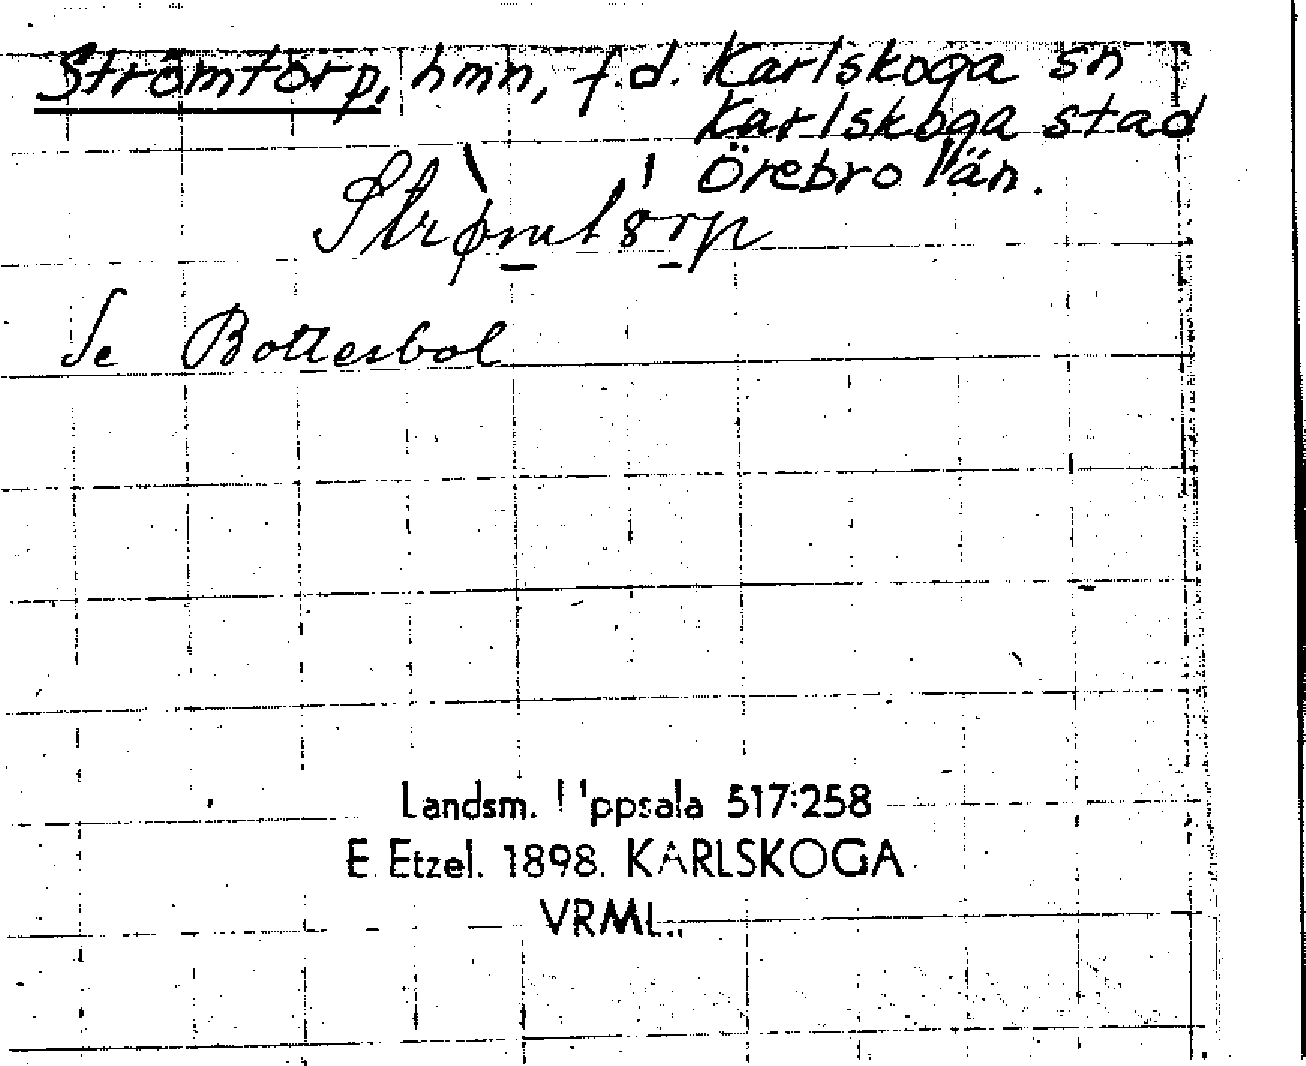 Strömtorp, hmn, f.d. Karlskoga sn
Karlskoga stad
Örebro län.
Strømtörp
Se Bottesbol
Landsm. Uppsala 517:258
E Etzel. 1898. KARLSKOGA
VRML.